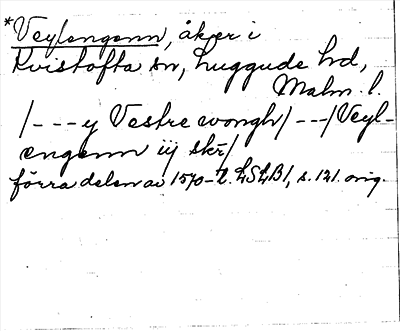 *Veylengenn, åker i
Kvistofta sn, Luggude hd,
Malm. l.
/---y Vestre wongh/---/Veyl-
engenn iij skr/
förra delen av 1570-t. LSLB1, s. 121. orig.